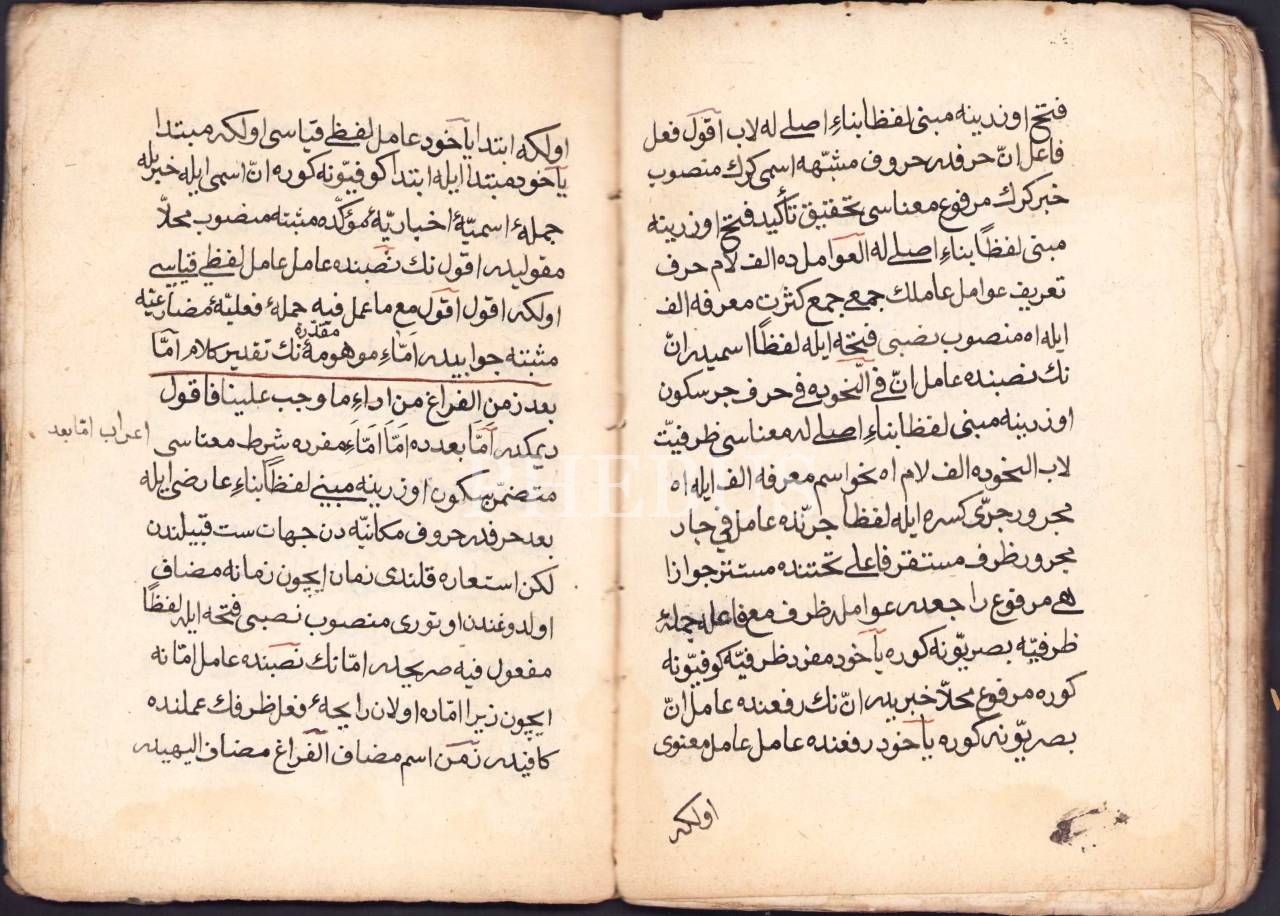 فتح اوزرينه مبنى لفظا بناء اصلى له لاب اقول فعل
فاعل انّ حرفدر حروف مشبّهه اسمى كرك منصوب
خبر كرك مرفوع معناسى تحقيق تأكيد فتح اوزرينه
مبنى لفظاً بناء اصلى له العوامل ده الف لام حرف
تعريف عوامل عاملك جمعى جمع كثرت معرفه الف
ايله اه منصوب نصبى فتحه ايله لفظاً اسميدر انّ
نك نصبنده عامل انّ فى النّحوده فى حرف جر سكون
اوزرينه مبنى لفظا بناء اصلى له معناسى ظرفيّت
لاب النحوده الف لام اه نحو اسم معرفه الف ايله اه
مجرور جرّى كسره ايله لفظا جرّنده عامل فى جار
مجرور ظرف مستقر فاعلى تحتنده مستتر جوازا
هى مرفوع راجعدر عوامله ظرف مع فاعله جملۀ
ظرفيّه بصريّونه كوره ياخود مفرد ظرفيّه كوفيّونه
كوره مرفوع محلاّ خبريدر انّ نك رفعنده عامل انّ
بصريّونه كوره ياخود رفعنده عامل عامل معنوى
اولكه
اولكه ابتدا ياخود عامل لفظى قياسى اولكه مبتدا
ياخود مبتدا ايله ابتدا كوفيّونه كوره انّ اسمى ايله خبريله
جملۀ اسميّۀ اخباريّۀ مؤكّده مثبته منصوب محلاّ
مقوليدر اقول نك نصبنده عامل عامل لفظى قياسى
اولكه اقول اقول مع ما عمل فيه جملۀ فعليّۀ مضارعيّه
مقدّره
مثبته جوابيدر امّاء موهومۀ نك تقدير كلام امّا
بعد زمن الفراغ من اداء ما وجب علينا فاقول
ديمكدر امّا بعد ده امّا امّاء مفرده شرط معناسى
اعراب امّا بعد
متضمّن سكون اوزرينه مبنى لفظاً بناء عارضى ايله
بعد حرفدر حروف مكانيّه دن جهات ست قبيلندن
لكن استعاره قلندى زمان ايچون زمانه مضاف
اولدوغندن اوتورى منصوب نصبى فتحه ايله لفظاً
مفعول فيه صريحدر امّا نك نصبنده عامل امّا نه
ايچون زيرا امّاده اولان رايحۀ فعل ظرفك عملنده
كافيدر زمن اسم مضاف الفراغ مضاف اليهيدر
PHEBUS